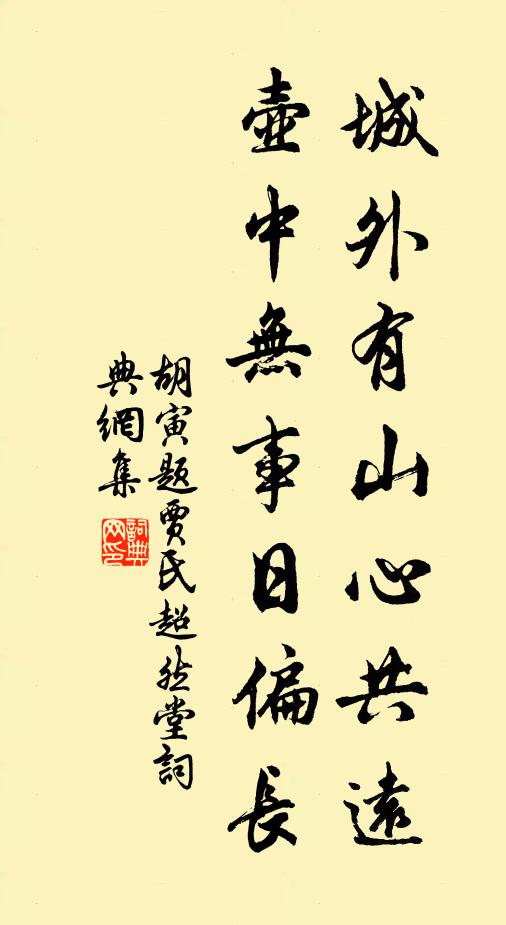 城外有山心共遠
壺中無事日偏長
胡寅題賈氏超然堂詞
典網集
詞典
网印